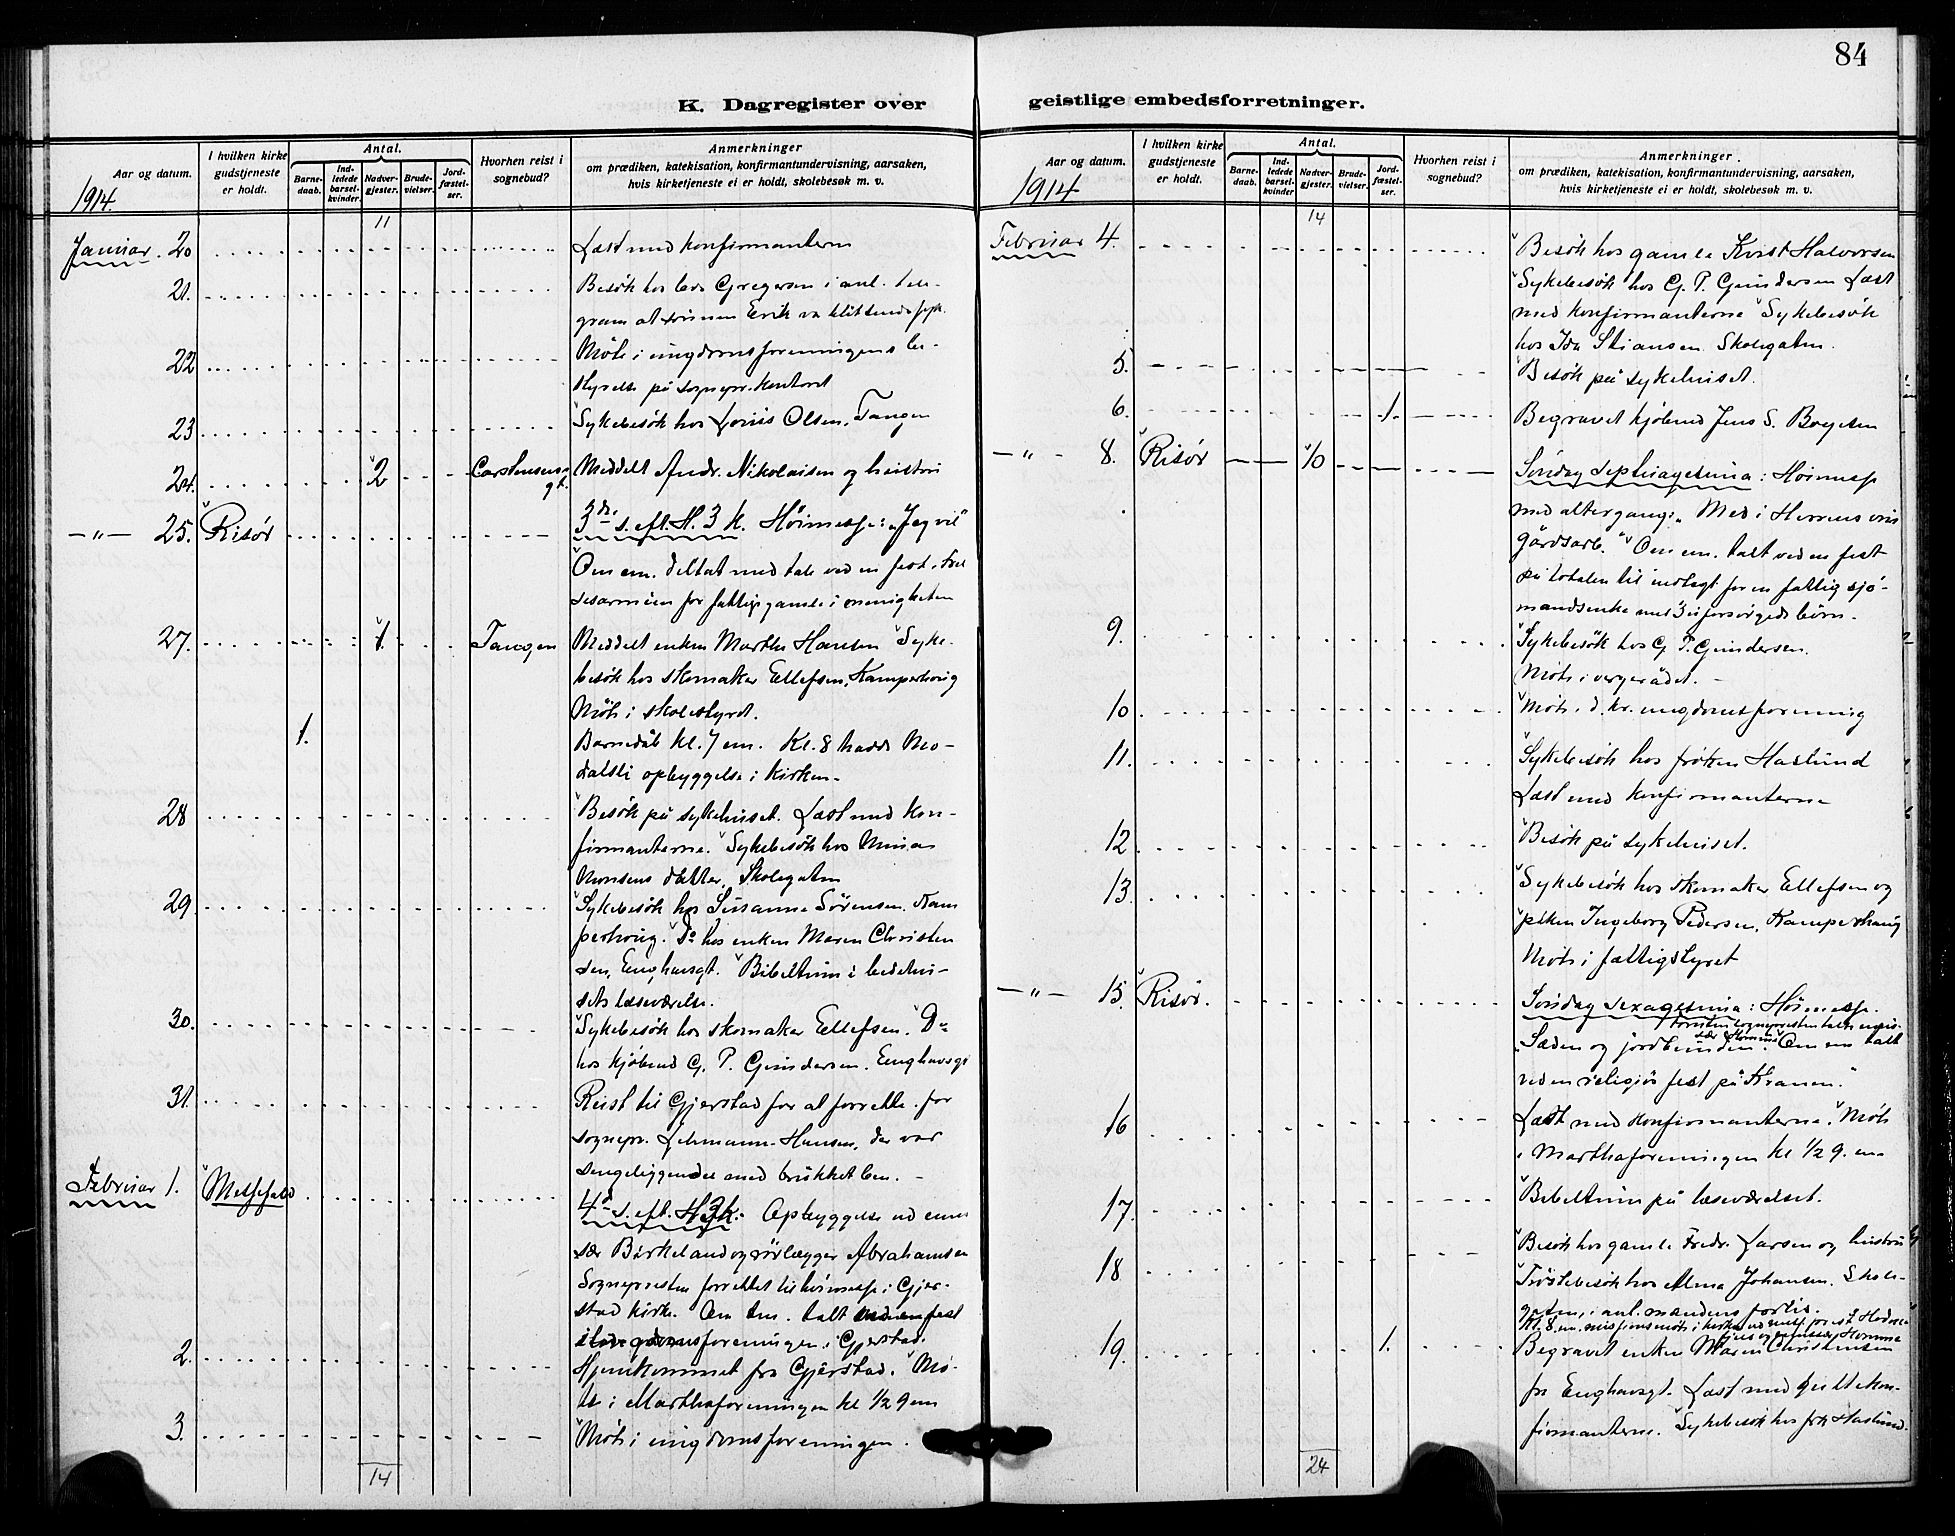 84
K. Dagregister over
geistlige embedsforretninger.
Aar og datum.
I hvilken kirke gudstjeneste er holdt.
Antal.
Barnedaab.
Indledede barselkvinder.
Nadvergjester.
Brudevielser.
Jordfæstelser.
Hvorhen reist i sognebud?
Anmerkninger
om prædiken, katekisation, konfirmantundervisning, aarsaken,
hvis kirketjeneste ei er holdt, skolebesøk m. v.
1914.
11
Januar 20 Læst med konfirmanterne
21. Besøk hos Gregersen i anl. tele-
gram at sønnen Erik
22 Møte i ungdomsforeningens be-
styrelse på sognepr. kontoret
23 Sykebesøk hos Olsen, Tangen
24. 2 Carstensens gt. Meddelt Andr. Nikolaisen og hustru
—"— 25. Risør 3die s. eft. H. 3 K. Høimesse: "Jeg vil"
Om em. deltat med tale ved en fest i Frel
sesarmeen for fattige gamle i menigheten
27. 1. Tangen Meddelt enken Marthe Hansen Syke-
besøk hos skomaker Ellefsen, Kamperhoug
Møte i skolestyret.
1. Barnedåb kl. 7 em. Kl. 8 hadde Mo-
dalsli opbyggelse i kirken.
28 Besøk på sykehuset. Læst med kon-
firmanterne. Sykebesøk hos Mina
Monsens datter, Skolegaten
29 Sykebesøk hos Susanne Sørensen. Kam
perhoug. Do hos enken Maren Christen
sen, Enghavsgt. Bibeltime i bedehu-
sets læseværelse.
30. Sykebesøk hos skomaker Ellefsen. Do
hos kjøbmd G. P. Gundersen. Enghavsgt
31. Reist til Gjerstad for at forrette for
sognepr. Lehmann-Hansen, der var
sengeliggende med brukket ben.
Februar 1. 4de s. eft. H3K. Opbyggelse ved emis
sær Birkeland og rørlægger Abrahamsen
Sognepresten forrettet til høimesse i Gjer-
stad kirke. Om em. talt ved en fest
foreningen i Gjerstad.
2. Hjemkommet fra Gjerstad. Mø-
te i Marthaforeningen kl 1/2 9 em
3. Møte i ungdomsforeningen.
14
Aar og datum.
I hvilken kirke gudstjeneste er holdt.
Antal.
Barnedaab.
Indledede barselkvinder
Nadvergjester.
Brudevielser.
Jordfæstelser.
Hvorhen reist i sognebud?
Anmerkninger.
om prædiken, katekisation, konfirmantundervisning, aarsaken,
hvis kirketjeneste ei er holdt, skolebesøk m. v.
1914
14
Februar 4. Besøk hos gamle Halvorsen
Sykebesøk hos G. P. Gundersen Læst
med konfirmanterne Sykebesøk
hos Ida Stiansen Skolegaten.
5. Besøk på sykehuset.
6. 1. Begravet kjøbmd Jens S. Boyesen
—"— 8. Risør 10 Søndag septuagesima: Høimesse
med altergang: "Med i Herrens vin
gårdsarb." Om em. talt ved en fest
på totalen til indtægt for en fattig sjø-
mandsenke med 3 uforsørgede børn.
9. Sykebesøk hos G. P. Gundersen.
Møte i vergerådet.
10 Møte i d. kr. ungdomsforening
11. Sykebesøk hos frøken Haslund
Læst med konfirmanterne
12 Besøk på sykehuset.
13. Sykebesøk hos skomaker Ellefsen og
piken Ingeborg Pedersen, Kamperhaug
Møte i fattigstyret
—"— 15. Risør. Søndag sexagesima: Høimesse.
"Sæden og jordbunden." Om em talt
ved en religiøs fest på "Kranen."
16 Læst med konfirmanterne. Møte
i Marthaforeningen kl 1/2 9. em
17. Bibeltime på læseværelset.
18 Besøk hos gamle Fredr. Larsen og hustru
Trøstebesøk hos Alma Johansen. Skole-
gaten, i anl. mandens forlis.
19. 1. Begravet enken Maren Christensen
fra Enghavsgt. Læst med guttekon-
firmanterne. Sykebesøk hos frk Haslund.
24